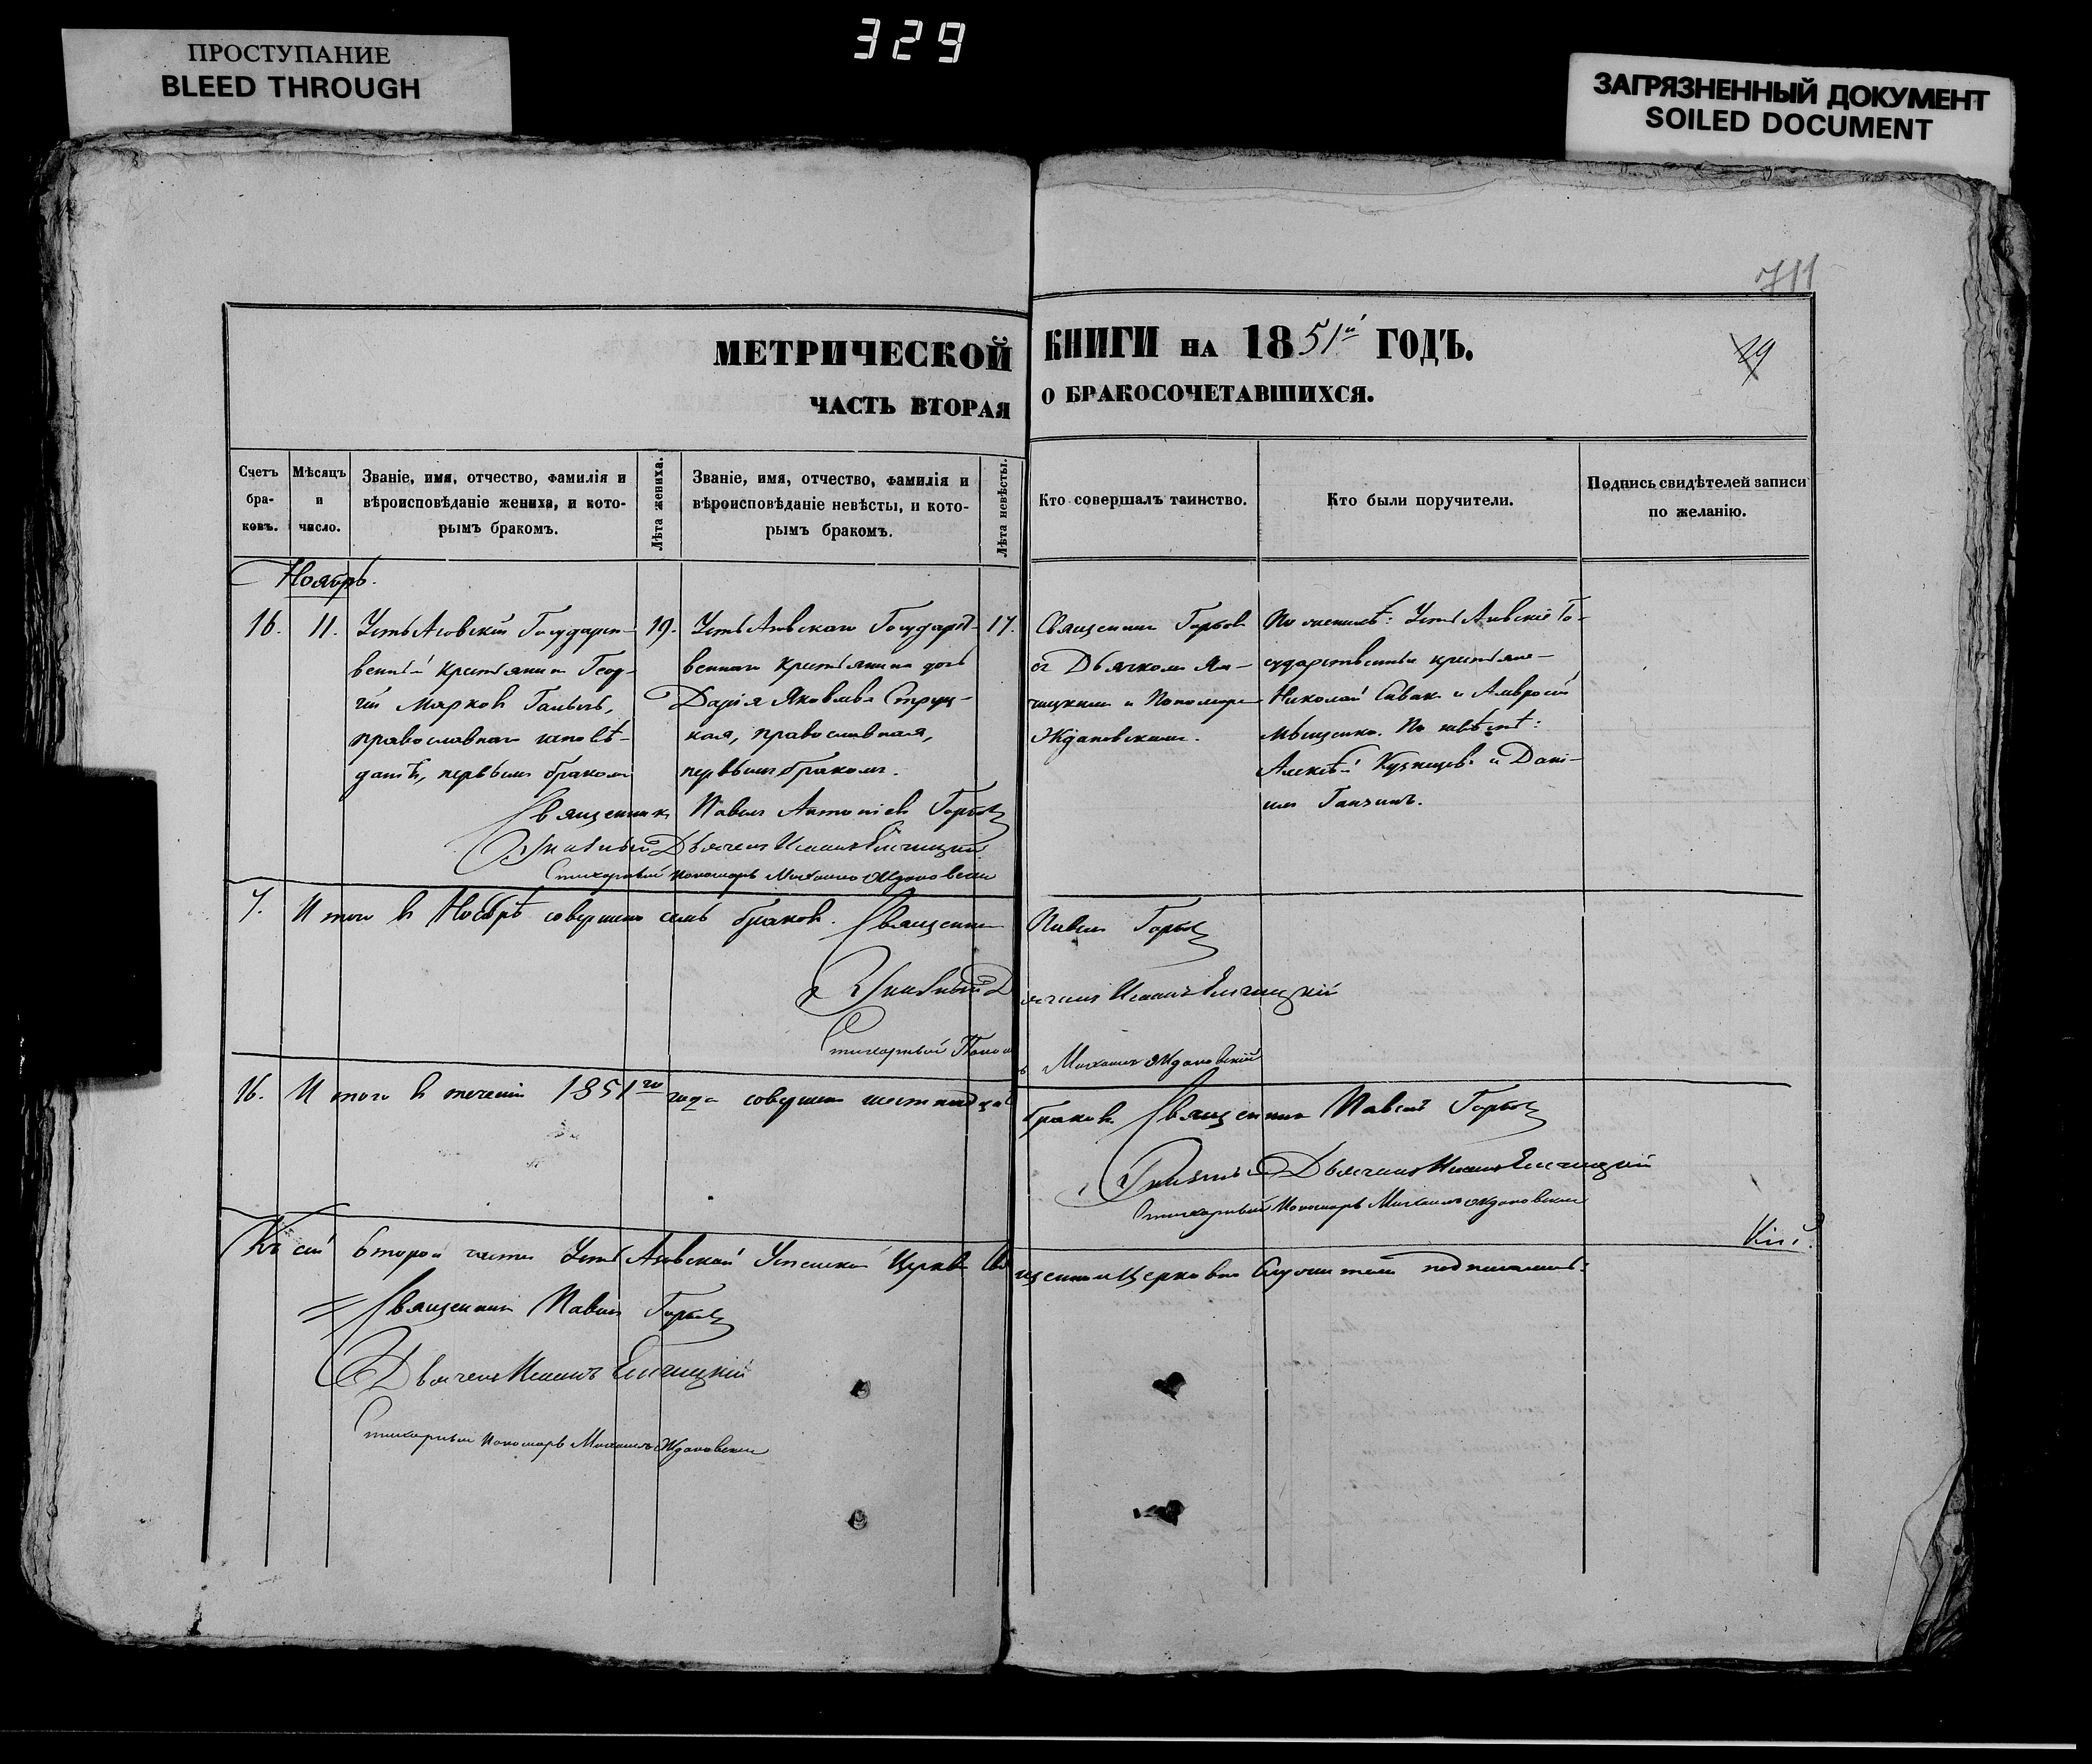 329
ПРОСТУПАНИЕ
BLEED THROUGH
ЗАГРЯЗНЕННЫЙ ДОКУМЕНТ
SOILED DOCUMENT
711
МЕТРИЧЕСКОЙ КНИГИ НА 1851й ГОДЪ.
29
ЧАСТЬ ВТОРАЯ О БРАКОСОЧЕТАВШИХСЯ.
Счетъ
бра-
ковъ.
Мѣсяцъ
и
число.
Званіе, имя, отчество, фамилія и
вѣроисповѣданіе жениха, и кото-
рымъ бракомъ.
Лѣта жениха.
Званіе, имя, отчество, фамилія и
вѣроисповѣданіе невѣсты, и кото-
рымъ бракомъ.
Лѣта невѣсты.
Кто совершалъ таинство.
Кто были поручители.
Подпись свидѣтелей записи
по желанію.
Ноябрь.
16.
11.
Государст-
венный крестьянинъ Геор-
гій Марковъ
православнаго исповѣ-
данія, первымъ бракомъ
19.
Государст-
веннаго крестьянина дочь
Дарія Яковлева Струц-
кая, православная,
первымъ бракомъ.
17.
Священникъ Горбов
съ Дьячкомъ
и Пономаремъ
Ждановскимъ.
По женихѣ: Го-
сударственные крестьяне
Николай Сивакъ и Амвросій
По невѣстѣ:
Алексѣй Кузнецовъ и Дані-
илъ
Священникъ Павелъ Антоніевъ Горбов
Дьячекъ Иоаннъ
Стихарный пономарь Михаилъ Ждановскій
7. Итого въ Ноябрѣ совершено семь браковъ. Священникъ Павелъ Горбов
Дьячекъ Иоаннъ
Стихарный Пономарь Михаилъ Ждановскій
16. Итого въ теченіи 1851го года совершено шестнадцать браковъ. Священникъ Павелъ Горбов
Дьячекъ Иоаннъ
Стихарный Пономарь Михаилъ Ждановскій
Къ сей второй части Успенской Церкви Священно и Церковно Служители подписались:
Священникъ Павелъ Горбов
Дьячекъ Иоаннъ
Стихарный Пономарь Михаилъ Ждановскій